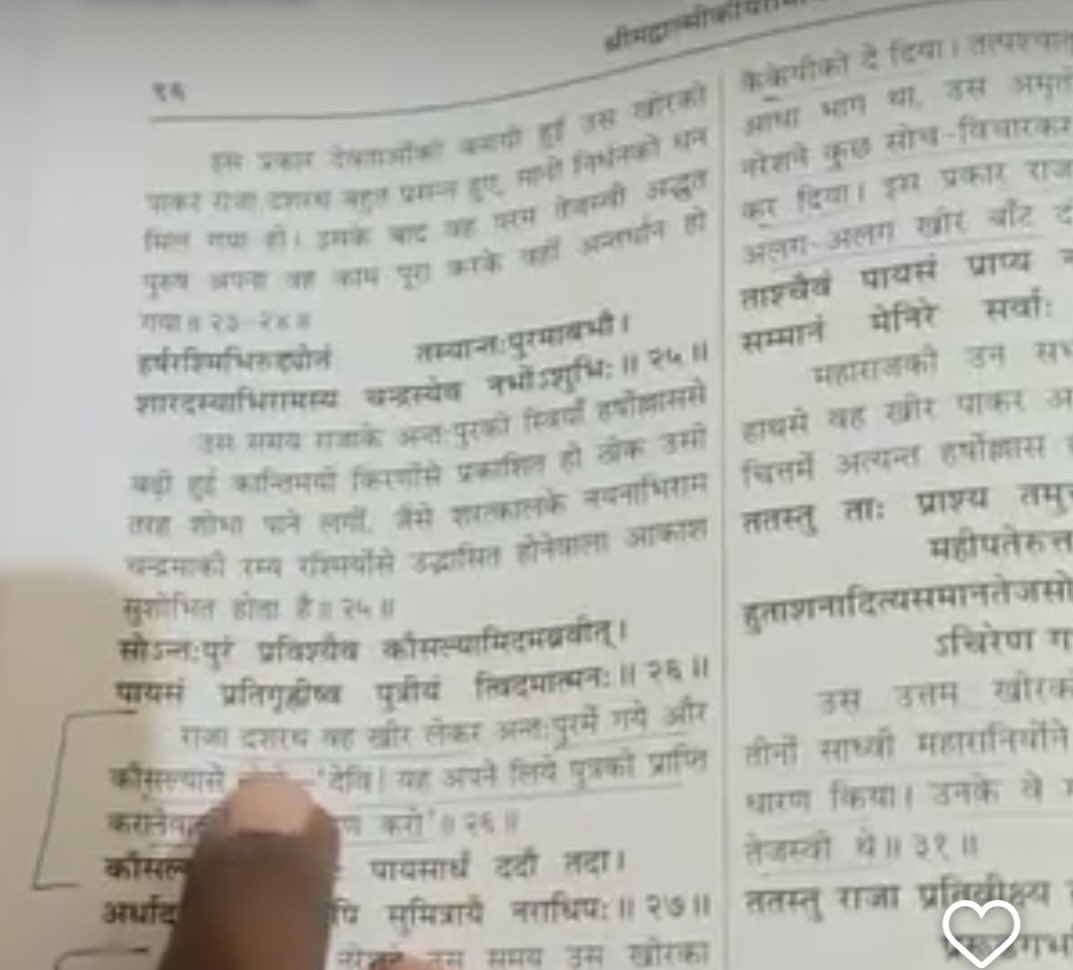 श्रीमद्वाल्मीकीयरामा
९६
इस प्रकार देवताओंकी बनायी हुई उस खीरको
पाकर राजा दशरथ बहुत प्रसन्न हुए, मानो निर्धनको धन
मिल गया हो। इसके बाद वह परम तेजस्वी अद्भुत
पुरुष अपना वह काम पूरा करके वहीं अन्तर्धान हो
गया॥ २३-२४॥
हर्षरश्मिभिरुद्द्योतं तस्यान्तःपुरमाबभौ।
शारदस्याभिरामस्य चन्द्रस्येव नभोंऽशुभिः॥ २५॥
उस समय राजाके अन्तःपुरकी स्त्रियाँ हर्षोल्लाससे
बढ़ी हुई कान्तिमयी किरणोंसे प्रकाशित हो ठीक उसी
तरह शोभा पाने लगीं, जैसे शरत्कालके नयनाभिराम
चन्द्रमाकी रम्य रश्मियोंसे उद्भासित होनेवाला आकाश
सुशोभित होता है॥ २५॥
सोऽन्तःपुरं प्रविश्यैव कौसल्यामिदमब्रवीत्।
पायसं प्रतिगृह्णीष्व पुत्रीयं त्विदमात्मनः॥ २६॥
राजा दशरथ वह खीर लेकर अन्तःपुरमें गये और
कौसल्यासे 'देवि! यह अपने लिये पुत्रकी प्राप्ति
करो'॥ २६॥
पायसार्धं ददौ तदा।
सुमित्रायै नराधिपः॥ २७॥
उस समय उस खीरका
कैकेयीको दे दिया। तत्पश्चात्
आधा भाग था, उस
नरेशने कुछ सोच-विचारकर
कर दिया। इस प्रकार
अलग-अलग खीर बाँट
ताश्चैवं पायसं प्राप्य
सम्मानं मेनिरे सर्वाः
महाराजकी उन
हाथसे वह खीर पाकर
चित्तमें अत्यन्त हर्षोल्लास
ततस्तु ताः प्राश्य
महीपतेरुत्त
हुताशनादित्यसमानतेजसो
ऽचिरेण
उस उत्तम
तीनों साध्वी महारानियोंने
धारण किया। उनके वे
तेजस्वी थे॥ ३१॥
ततस्तु राजा प्रतिवीक्ष्य